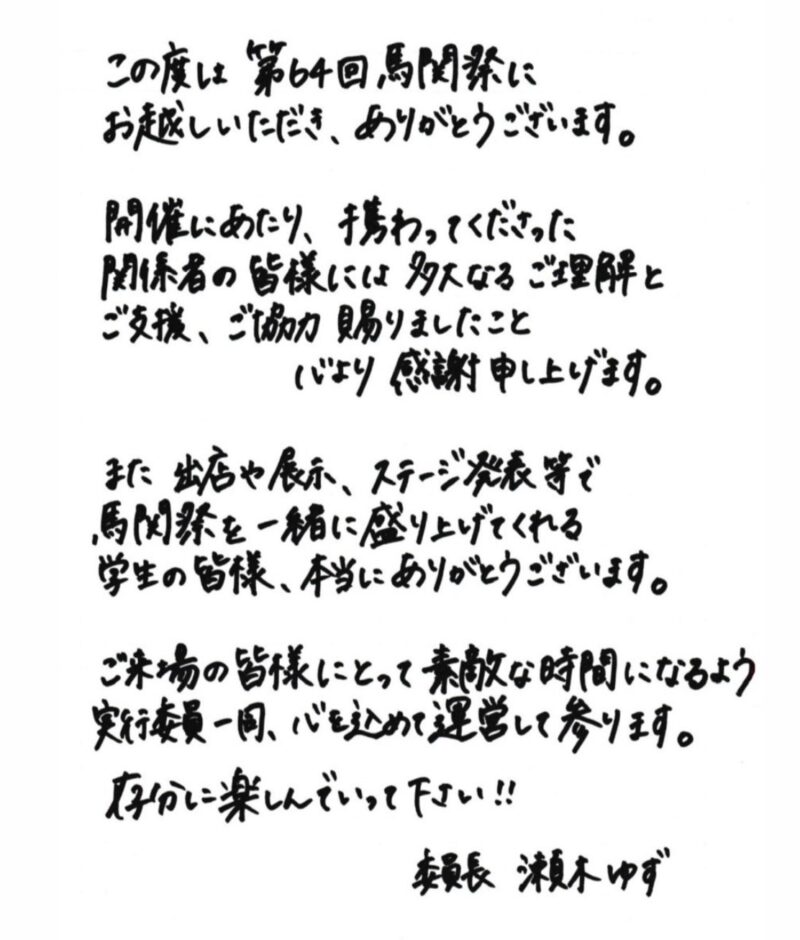 この度は 第64回 馬関祭に
お越しいただき、ありがとうございます。
開催にあたり、携わってくださった
関係者の皆様には 多大なる ご理解と
ご支援、ご協力 賜りましたこと
心より 感謝申し上げます。
また 出店や展示、ステージ発表等で
馬関祭を 一緒に盛り上げてくれる
学生の皆様、本当にありがとうございます。
ご来場の皆様にとって 素敵な時間になるよう
実行委員一同、心を込めて運営して参ります。
存分に楽しんでいって下さい!!
委員長 瀬木ゆず